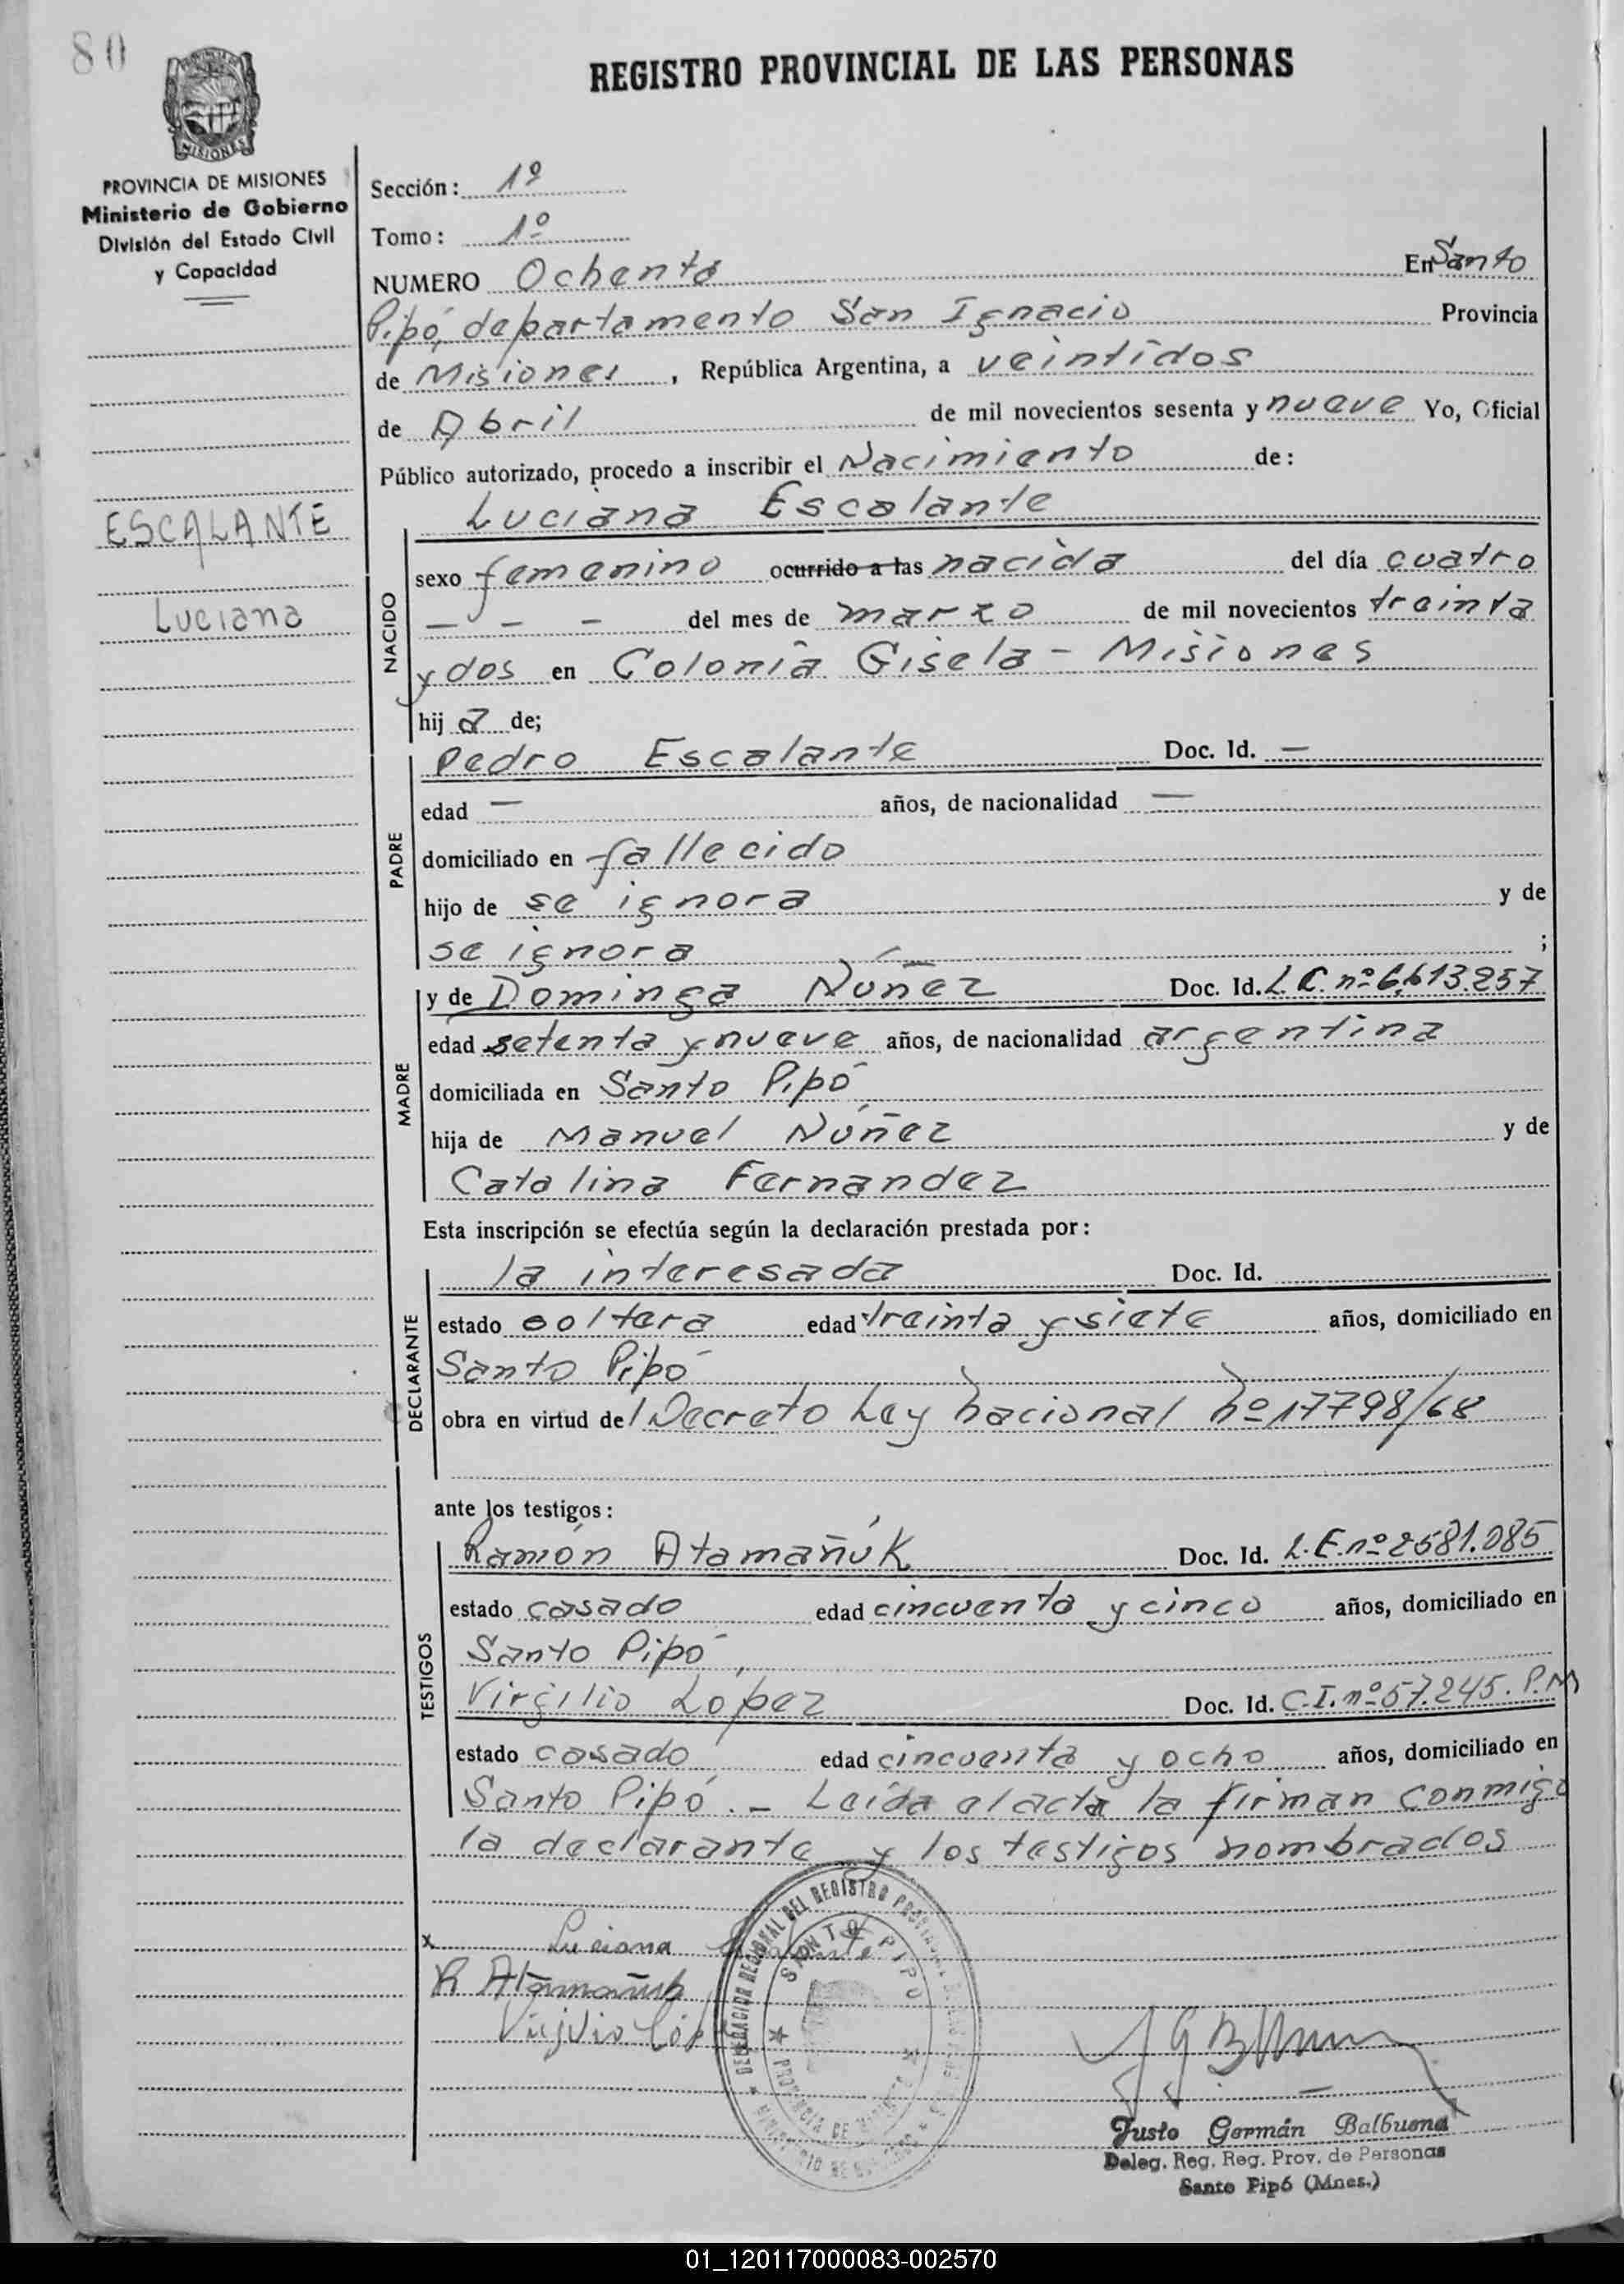 80
REGISTRO PROVINCIAL DE LAS PERSONAS
MISIONES
PROVINCIA DE MISIONES
Ministerio de Gobierno
División del Estado Civil
y Capacidad
ESCALANTE
Luciana
Sección: 1º
Tomo: 1º
NUMERO Ochenta En Santo
Pipó, departamento San Ignacio Provincia
de Misiones, República Argentina, a veintidos
de Abril de mil novecientos sesenta y nueve Yo, Oficial
Público autorizado, procedo a inscribir el Nacimiento de:
Luciana Escalante
NACIDO
sexo femenino ocurrido a las nacida del día cuatro
— — — del mes de marzo de mil novecientos treinta
y dos en Colonia Gisela - Misiones
hij a de;
PADRE
Pedro Escalante Doc. Id. —
edad — años, de nacionalidad —
domiciliado en fallecido
hijo de se ignora y de
se ignora ;
MADRE
y de Dominga Núñez Doc. Id. L.C. nº 6.613.257
edad setenta y nueve años, de nacionalidad argentina
domiciliada en Santo Pipó
hija de Manuel Núñez y de
Catalina Fernandez
Esta inscripción se efectúa según la declaración prestada por:
DECLARANTE
la interesada Doc. Id.
estado soltera edad treinta y siete años, domiciliado en
Santo Pipó
obra en virtud del Decreto Ley Nacional Nº 17798/68
ante los testigos:
TESTIGOS
Ramón Atamañúk Doc. Id. L.E. nº 2581.085
estado casado edad cincuenta y cinco años, domiciliado en
Santo Pipó,
Virgilio López Doc. Id. C.I. nº 57.245. P.M
estado casado edad cincuenta y ocho años, domiciliado en
Santo Pipó. - Leída el acta la firman conmigo
la declarante y los testigos nombrados
x Luciana Escalante
R Atamañuk
Virjilio Lóp
DELEGACION REGIONAL DEL REGISTRO
SANTO PIPO
PROVINCIA DE MISIONES
Justo Germán Balbuena
Deleg. Reg. Reg. Prov. de Personas
Santo Pipó (Mnes.)
01_120117000083-002570